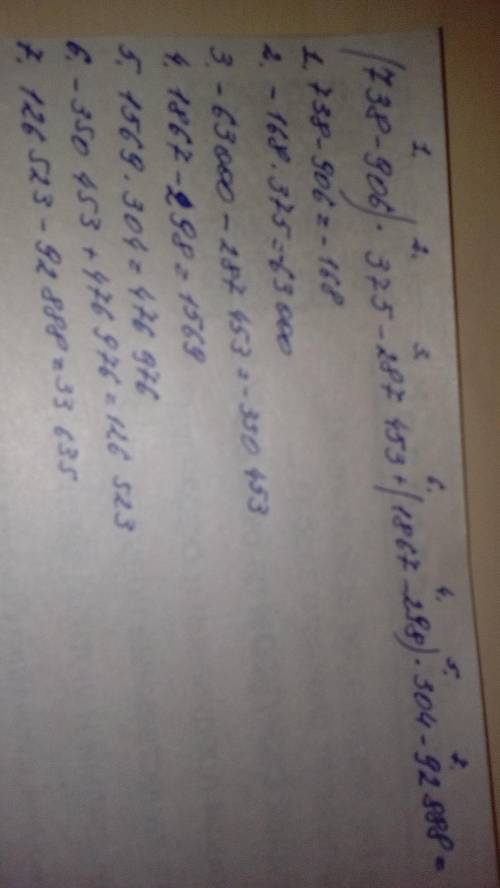 1. 2. 3. 6. 4. 5. 7.
(738-906)·375-287 453+(1867-298)·304-92 888=
1. 738-906=-168
2. -168·375=-63 000
3. -63000-287 453=-350 453
4. 1867-298=1569
5. 1569·304=476 976
6. -350 453+476 976=126 523
7. 126 523-92 888=33 635